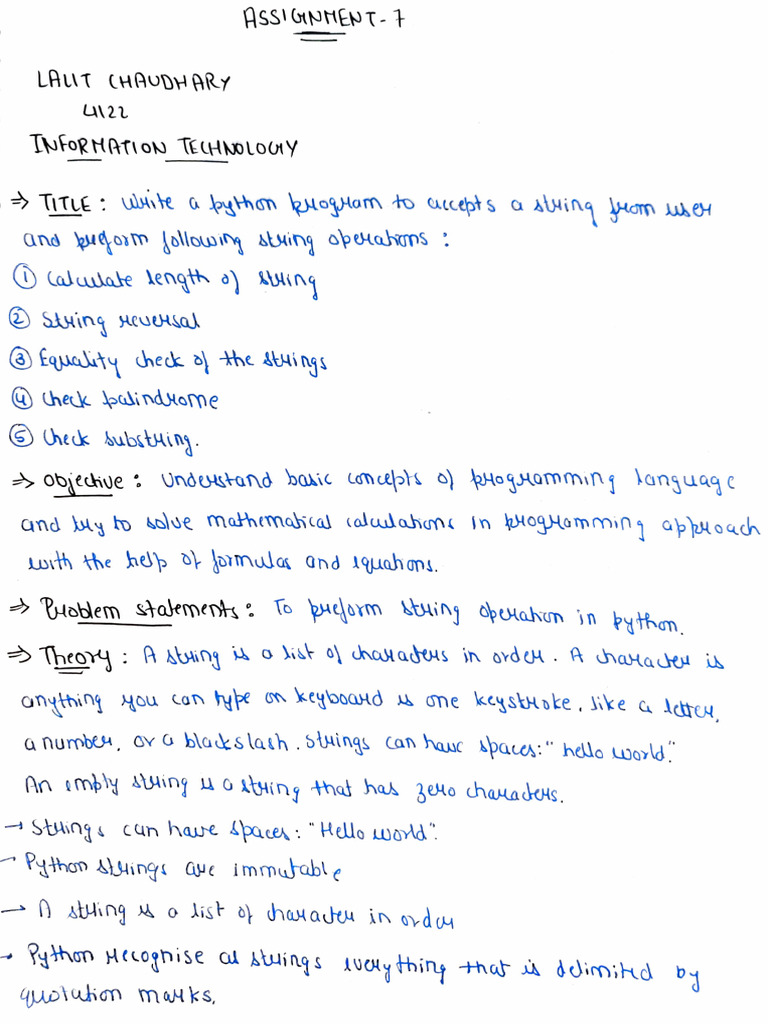 ASSIGNMENT-7
LALIT CHAUDHARY
4122
INFORMATION TECHNOLOGY
⇒ TITLE: Write a python program to accepts a string from user
and preform following string operations:
① Calculate length of string
② String reversal
③ Equality check of the strings
④ Check palindrome
⑤ Check substring.
⇒ Objective: Understand basic concepts of programming language
and try to solve mathematical calculations in programming approach
with the help of formulas and equations.
⇒ Problem statements: To preform string operation in python.
⇒ Theory: A string is a list of characters in order. A character is
anything you can type on keyboard is one keystroke, like a letter,
a number, or a blackslash. Strings can have spaces: "hello world".
An empty string is a string that has zero characters.
→ Strings can have spaces: "Hello world".
→ Python strings are immutable
→ A string is a list of character in order
→ Python recognise as strings everything that is delimited by
quotation marks.